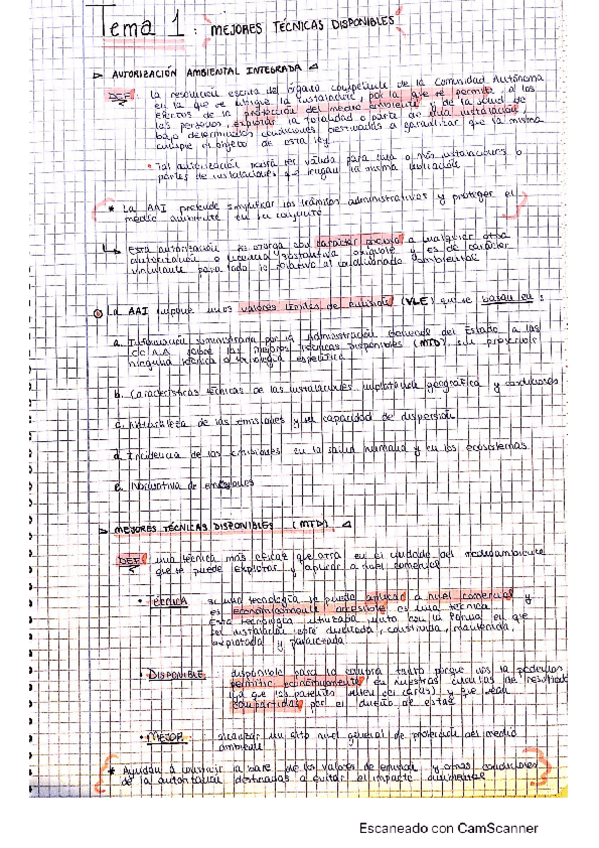 Tema 1 : MEJORES TÉCNICAS DISPONIBLES
▷ AUTORIZACIÓN AMBIENTAL INTEGRADA ◁
DEF: La resolución escrita del órgano competente de la Comunidad Autónoma
en la que se ubique la instalación, por la que se permite, a los
efectos de la protección del medio ambiente y de la salud de
las personas, explotar la totalidad o parte de una instalación,
bajo determinadas condiciones destinadas a garantizar que la misma
cumple el objeto de esta ley.
• Tal autorización podrá ser válida para una o más instalaciones o
partes de instalaciones que tengan la misma ubicación
* La AAI pretende simplificar los trámites administrativos y proteger el
medio ambiente en su conjunto
↳ Esta autorización se otorga con carácter previo a cualquier otra
autorización o licencia sustantiva exigible y es de carácter
vinculante para todo lo relativo al condicionado ambiental
La AAI impone unos valores límites de emisión (VLE) que se basan en :
a. Información suministrada por la Administración General del Estado a las
CC.AA sobre las mejores técnicas disponibles (MTD), sin prescribir
ninguna técnica o tecnología específica
b. Características técnicas de las instalaciones, implantación geográfica y condiciones
c. Naturaleza de las emisiones y su capacidad de dispersión
d. Incidencia de las emisiones en la salud humana y en los ecosistemas
e. Normativa de emisiones
▷ MEJORES TÉCNICAS DISPONIBLES (MTD) ◁
DEF: una técnica más eficaz que otra en el cuidado del medioambiente
que se puede explotar y aplicar a nivel comercial
• TÉCNICA: si una tecnología se puede aplicar a nivel comercial y
es económicamente accesible es una técnica
Esta tecnología utilizada, junto con la forma en que
la instalación esté diseñada, construida, mantenida,
explotada y paralizada
• DISPONIBLE: disponible para la compra tanto porque nos la podemos
permitir económicamente en nuestras cuentas de resultado
(ya que las patentes suelen ser caras) y que sean
compartidas por el dueño de estas
• MEJOR: alcanzar un alto nivel general de protección del medio
ambiente
* Ayudan a construir a base de los valores de emisión y otras condiciones
de la autorización destinadas a evitar el impacto ambiental
Escaneado con CamScanner